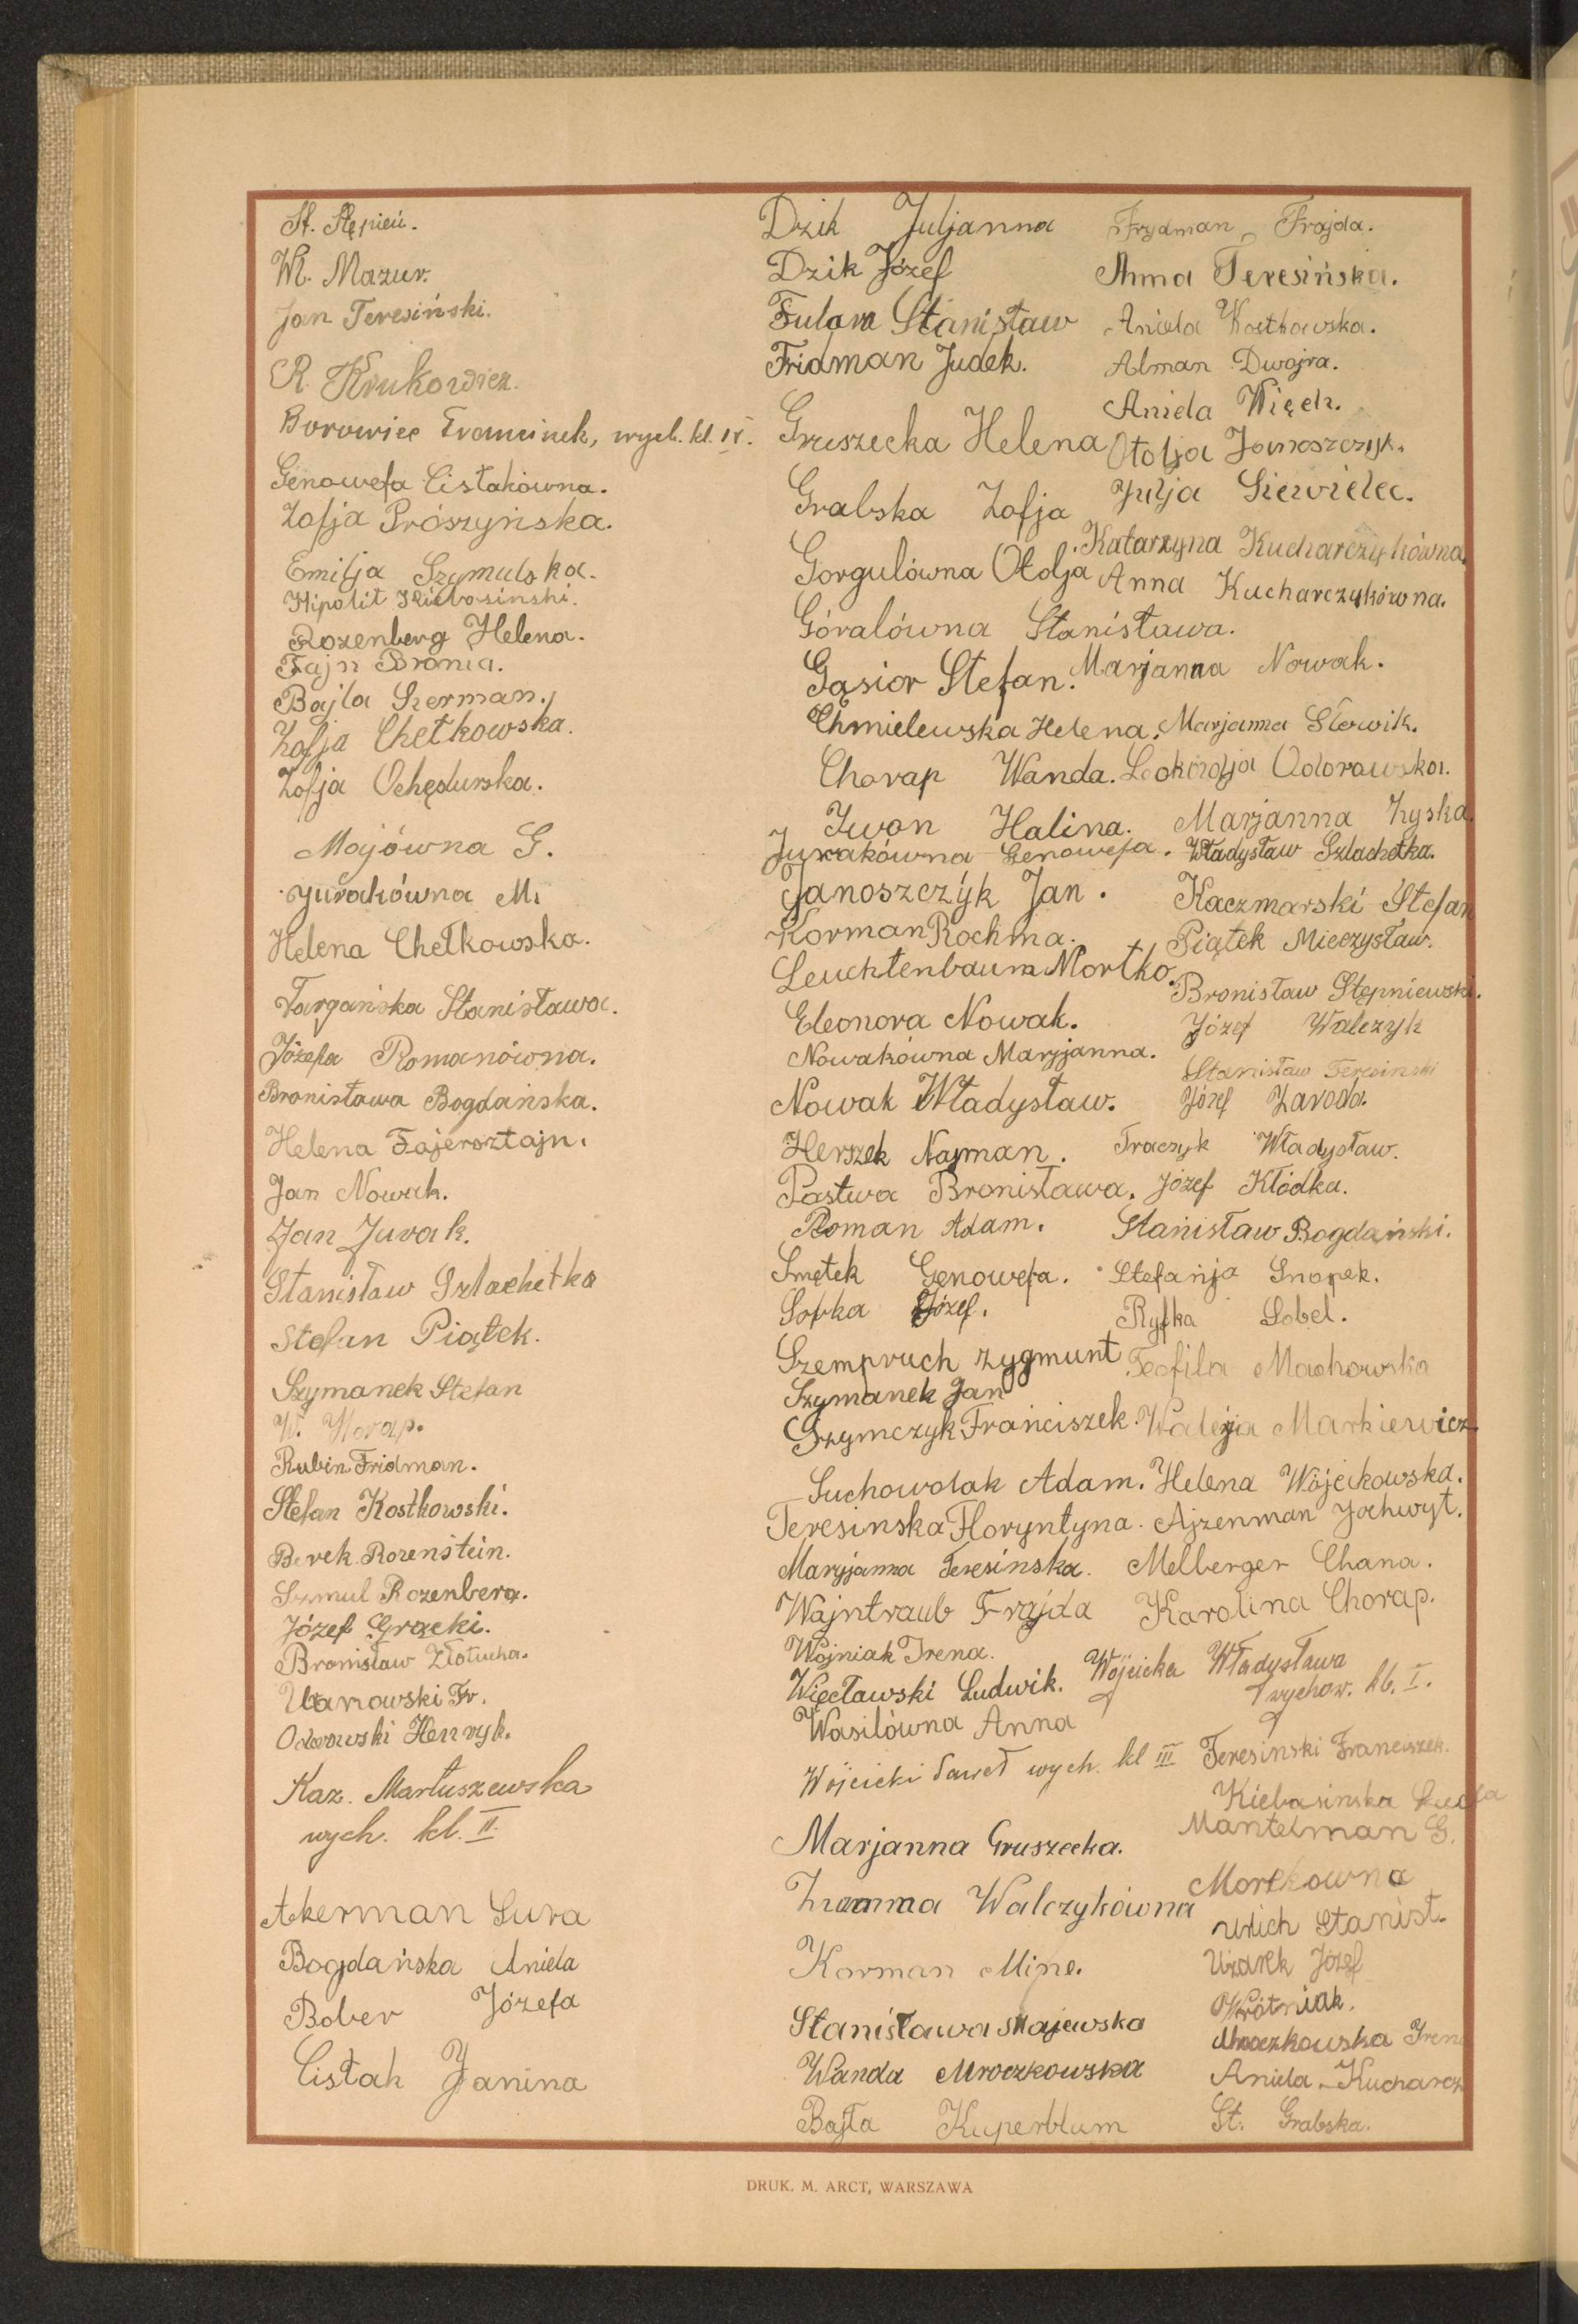 St. Stępień.
Wł. Mazur.
Jan Teresiński.
R. Krukowicz.
Borowiec Franciszek, wych. kl. IV.
Genowefa Cistakówna.
Zofja Prószyńska.
Emilja Szymulska.
Hipolit Kiełbasinski.
Rozenberg Helena.
Fajn Brania.
Bajla Szerman.
Zofja Chetkowska.
Zofja Ochędurska.
Majówna G.
Jurakówna M.
Helena Chetkowska.
Targańska Stanisława.
Józefa Romanówna.
Bronisława Bogdańska.
Helena Fajersztajn.
Jan Nowak.
Jan Jurak.
Stanisław Szlachetka
Stefan Piątek.
Szymanek Stefan
W. Horap.
Rubin Fridman.
Stefan Kostkowski.
Berek Rozenstein.
Szmul Rozenberg.
Józef Grącki.
Bronisław Złotucha.
Uranowski Fr.
Odorowski Henryk.
Kaz. Martuszewska
wych. kl. II.
Akerman Sura
Bogdańska Aniela
Bober Józefa
Cistak Janina
Dzik Juljanna
Dzik Józef
Fulara Stanisław
Fridman Judek.
Gruszecka Helena
Grabska Zofja
Gorgulówna Otolja
Góralówna Stanisława.
Gąsior Stefan.
Chmielewska Helena.
Chorap Wanda.
Iwan Halina.
Jurakówna Genowefa.
Janoszczyk Jan.
Korman Rochma.
Leuchtenbaum Mortko.
Eleonora Nowak.
Nowakówna Maryjanna.
Nowak Władysław.
Herszek Najman.
Pastwa Bronisława.
Roman Adam.
Smętek Genowefa.
Sobka Józef.
Szempruch Zygmunt
Szymanek Jan
Szymczyk Franciszek.
Suchowolak Adam.
Teresinska Floryntyna.
Maryjanna Teresinska.
Wajntraub Frajda
Wojniak Irena.
Więcławski Ludwik.
Wasilówna Anna
Wójcicki Paweł wych. kl III
Marjanna Gruszecka.
Zuzanna Walczykówna
Korman Mine.
Stanisława Majewska
Wanda Mroczkowska
Bajla Kuperblum
Frydman Frajda.
Anna Teresińska.
Aniela Kostkowska.
Alman Dwojra.
Aniela Więch.
Otolja Janoszczyk.
Julja Siewielec.
Katarzyna Kucharczykówna.
Anna Kucharczykówna.
Marjanna Nowak.
Marjanna Słowik.
Leokadja Odorowska.
Marjanna Zyska.
Władysław Szlachetka.
Kaczmarski Stefan
Piątek Mieczysław.
Bronisław Stępniewski.
Józef Walczyk
Stanisław Teresinski
Józef Zavoda.
Traczyk Władysław.
Józef Kłódka.
Stanisław Bogdański.
Stefanja Snopek.
Ryfka Sobel.
Teofila Machowska
Walerja Markiewicz.
Helena Wójcikowska.
Ajzenman Jochwyt.
Melberger Chana.
Karolina Chorap.
Wójcicka Władysława
wychow. kl. I.
Teresinski Franciszek.
Kiełbasinska
Mantelman G.
Mortkowna
Ulrich Stanisł.
Użarek Józef
Wrótniak.
Mroczkowska Irena
Aniela Kucharcz
St. Grabska.
DRUK. M. ARCT, WARSZAWA